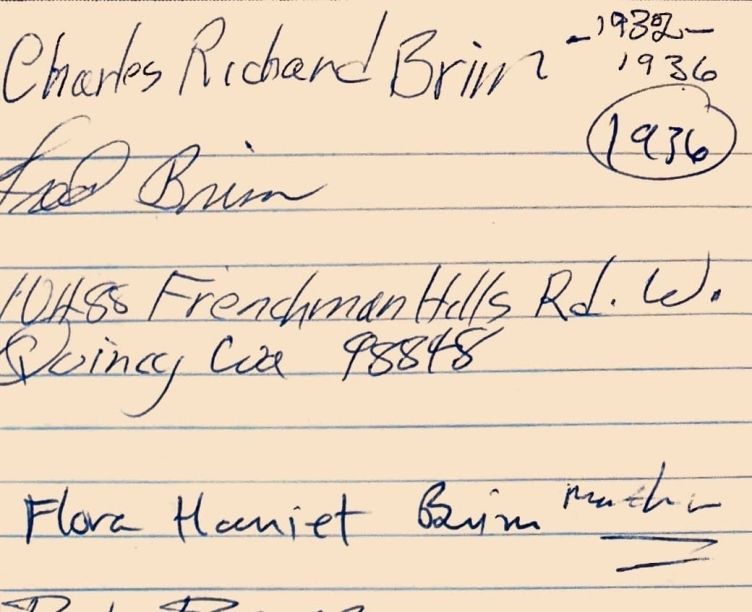 Charles Richard Brim -1932-
1936
1936
Fred Brim
10488 Frenchman Hills Rd. W.
Quincy Wa 98848
Flora Harriet Brim Mother